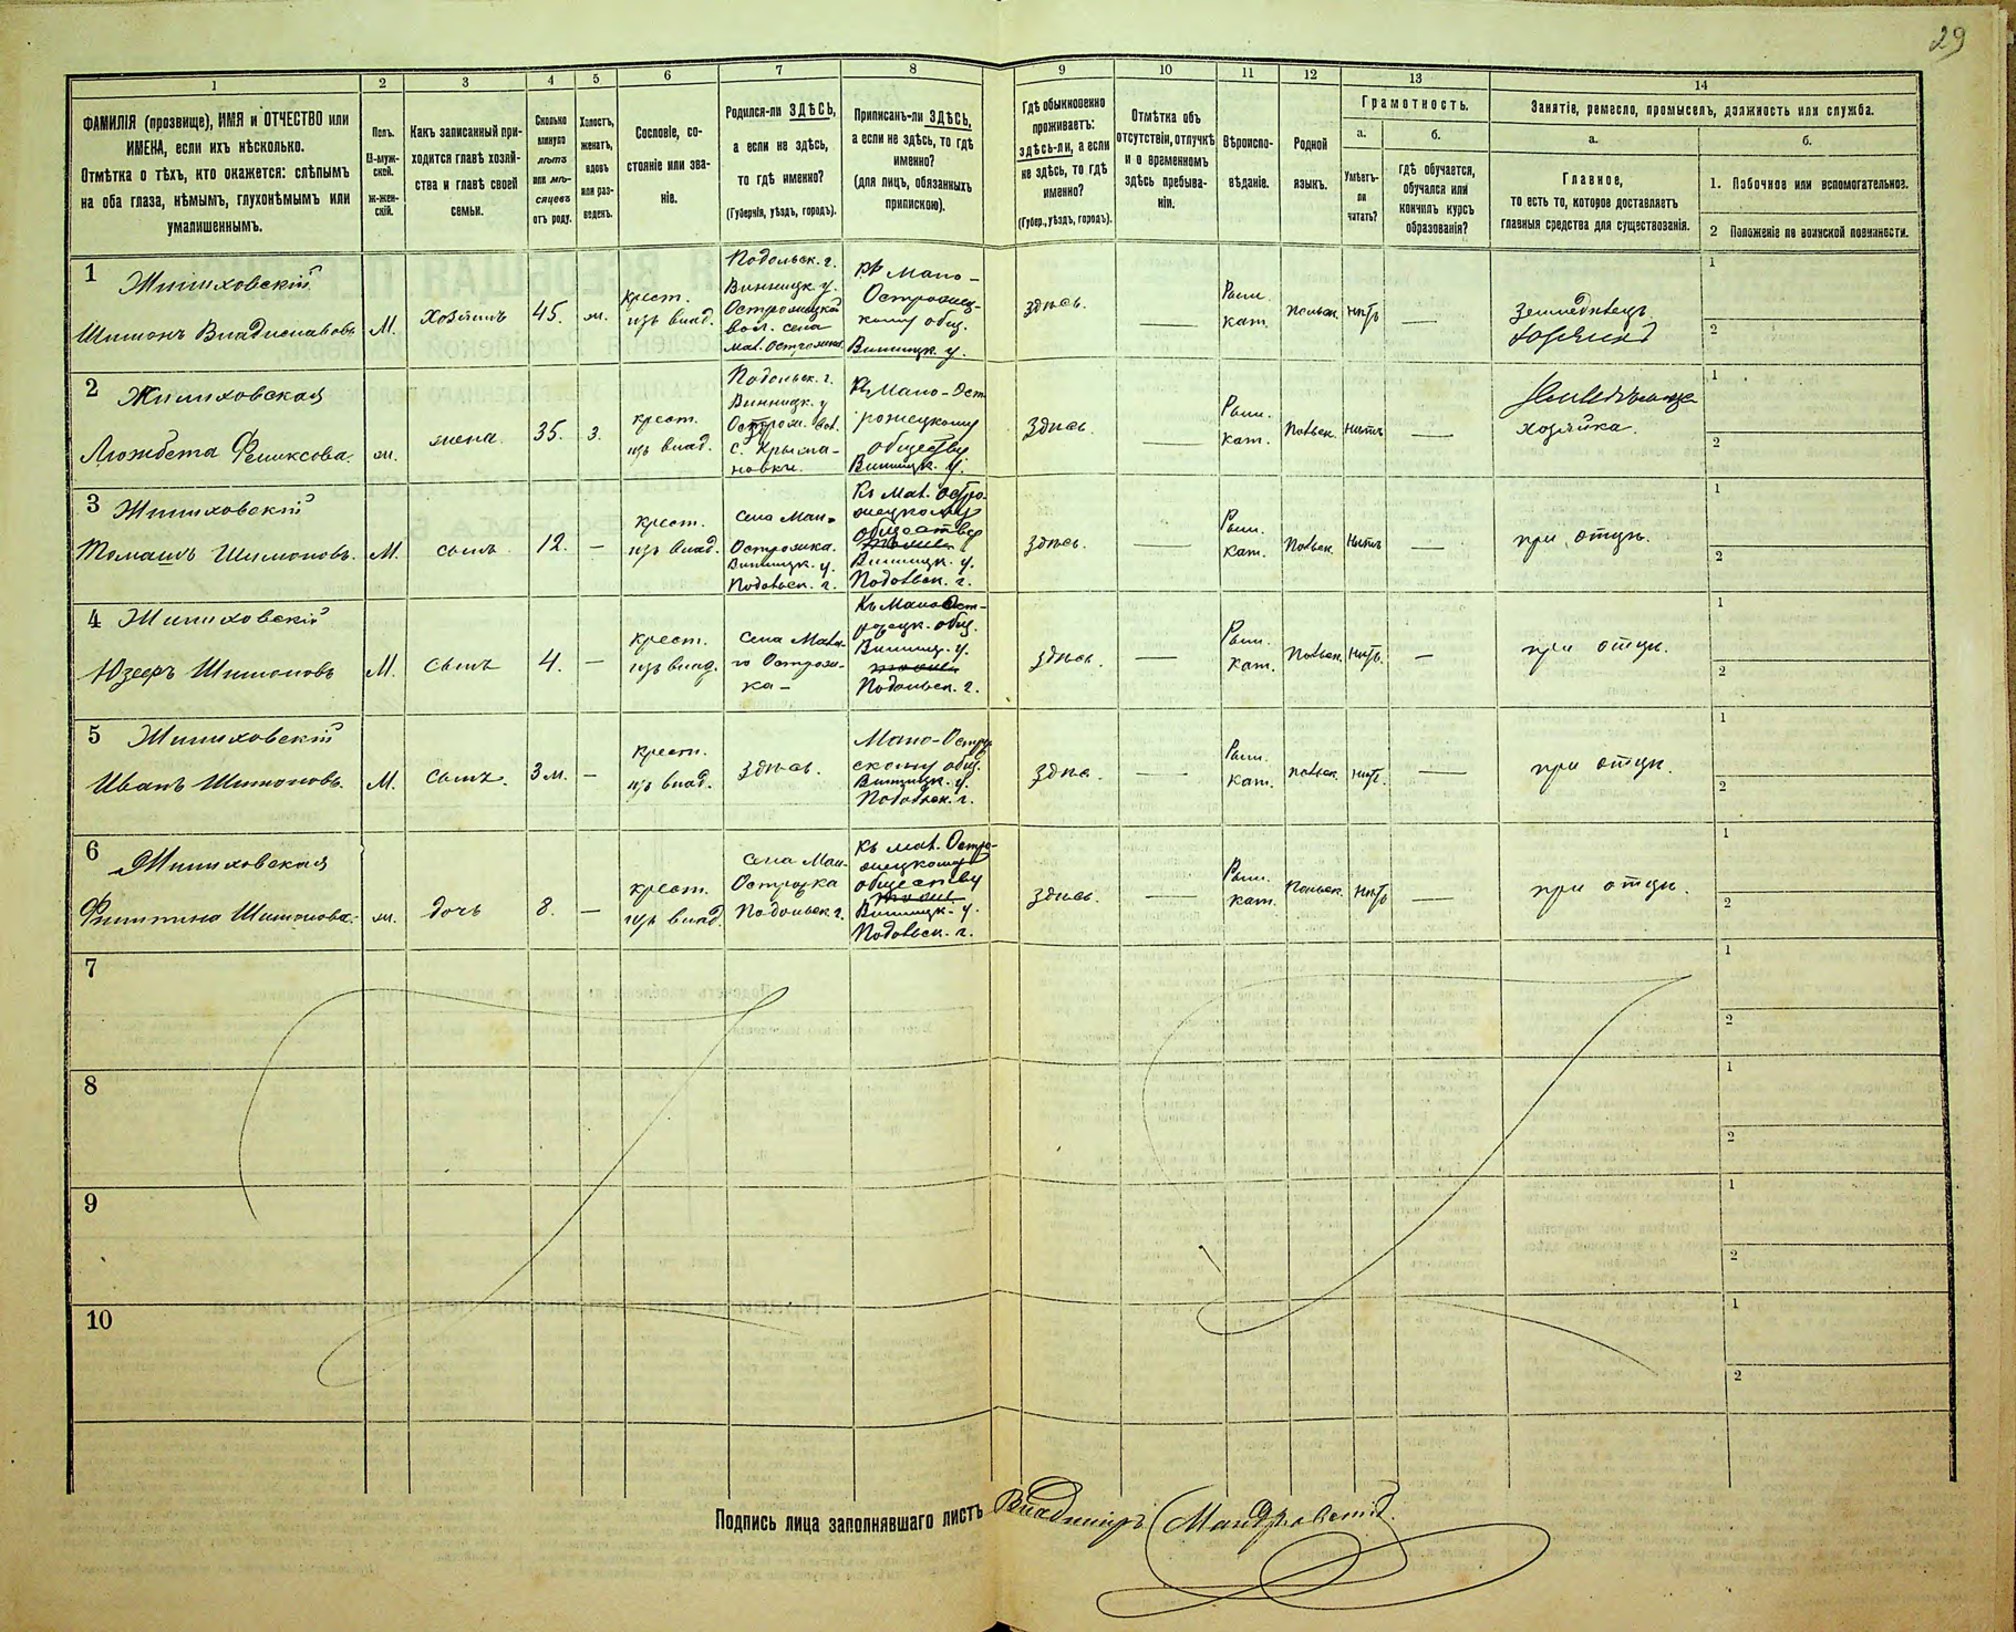 29
1 2 3 4 5 6 7 8 9 10 11 12 13 14
ФАМИЛІЯ (прозвище), ИМЯ и ОТЧЕСТВО или
ИМЕНА, если ихъ нѣсколько.
Отмѣтка о тѣхъ, кто окажется: слѣпымъ
на оба глаза, нѣмымъ, глухонѣмымъ или
умалишеннымъ.
Полъ.
М-муж-
ской.
Ж-жен-
скій.
Какъ записанный при-
ходится главѣ хозяй-
ства и главѣ своей
семьи.
Сколько
минуло
лѣтъ
или мѣ-
сяцевъ
отъ роду.
Холостъ,
женатъ,
вдовъ
или раз-
веденъ.
Сословіе, со-
стояніе или зва-
ніе.
Родился-ли ЗДѢСЬ,
а если не здѣсь,
то гдѣ именно?
(Губернія, уѣздъ, городъ).
Приписанъ-ли ЗДѢСЬ,
а если не здѣсь, то гдѣ
именно?
(для лицъ, обязанныхъ
припискою).
Гдѣ обыкновенно
проживаетъ:
здѣсь-ли, а если
не здѣсь, то гдѣ
именно?
(Губер., уѣздъ, городъ).
Отмѣтка объ
отсутствіи, отлучкѣ
и о временномъ
здѣсь пребыва-
ніи.
Вѣроиспо-
вѣданіе.
Родной
языкъ.
Грамотность.
а.
Умѣетъ-
ли
читать?
б.
гдѣ обучается,
обучался или
кончилъ курсъ
образованія?
Занятіе, ремесло, промыселъ, должность или служба.
а.
Главное,
то есть то, которое доставляетъ
главныя средства для существованія.
б.
1. Побочное или вспомогательное.
2 Положеніе по воинской повинности.
1
Жилиховскій
Шимонъ Владиславовъ
М.
Хозяинъ
45.
ж.
крест.
изъ влад.
Подольск. г.
Винницк. у.
Острожецкой
вол. села
Мал. Острожка
Къ Мало-
Острожец-
кому общ.
Винницк. у.
здѣсь.
—
Рим.
кат.
польск.
нѣтъ
—
земледѣлецъ
хозяинъ
1
2
2
Жилиховская
Люжбета Феликсова.
ж.
жена
35.
з.
крест.
изъ влад.
Подольск. г.
Винницк. у
Острож. вол.
Къ Мало-Ост
рожецкому
обществу
Винницк. у.
здѣсь.
—
Рим.
кат.
польск.
нѣтъ
—
хозяйка.
1
2
3
Жилиховскій
Томашъ Шимоновъ.
М.
сынъ
12.
—
крест.
изъ влад.
Села Мал.
Острожка.
Винницк. у.
Подольск. г.
Къ Мал. Остро-
жецкому
обществу
Винницк. у.
Подольск. г.
здѣсь.
—
Рим.
кат.
польск.
нѣтъ
—
при отцѣ.
1
2
4
Жилиховскій
Юзефъ Шимоновъ
М.
сынъ
4.
—
крест.
изъ влад.
Села Мала-
го Острож-
ка –
Къ Мало Ост-
рожецк. общ.
Винниц. у.
Подольск. г.
здѣсь.
—
Рим.
кат.
польск.
нѣтъ.
—
при отцѣ.
1
2
5
Жилиховскій
Иванъ Шимоновъ.
М.
сынъ.
3 м.
—
крест.
изъ влад.
здѣсь.
Мало-Остро
скому общ.
Винницк. у.
Подольск. г.
здѣс.
—
Рим.
кат.
польск.
нѣт.
—
при отцѣ.
1
2
6
Жилиховская
Филипина Шимонова.
ж.
дочь
8.
—
крест.
изъ влад.
Села Мал-
Острожка
Подольск. г.
Къ мал. Остро-
жецкому
обществу
Винницк. у.
Подольск. г.
здѣсь.
—
Рим.
кат.
польск.
нѣтъ
—
при отцѣ.
1
2
7
1
2
8
1
2
9
1
2
10
1
2
Подпись лица заполнявшаго листъ Владиміръ